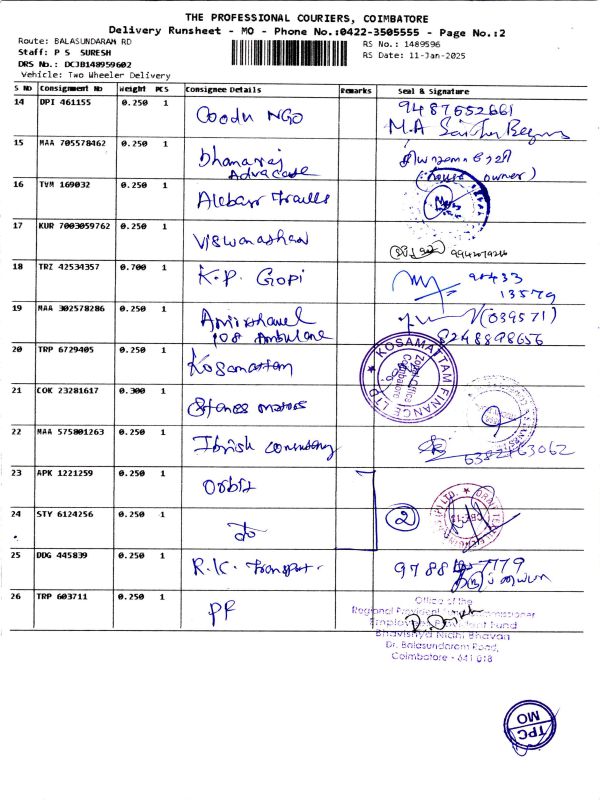 THE PROFESSIONAL COURIERS, COIMBATORE
Delivery Runsheet - MO - Phone No.:0422-3505555 - Page No.:2
Route: BALASUNDARAM RD
RS No.: 1489596
Staff: P S SURESH
RS Date: 11-Jan-2025
DRS No.: DCJB148959602
Vehicle: Two Wheeler Delivery
S NO Consignment No Weight PCS Consignee Details Remarks Seal & Signature
14 DPI 461155 0.250 1 NGO 9487652661
M.A
15 MAA 705578462 0.250 1 Dhanaraj
Advocate (house owner)
16 TVM 169032 0.250 1
17 KUR 7003059762 0.250 1 Viswanathan
18 TRZ 42534357 0.700 1 K.P. GOPI
13579
19 MAA 302578286 0.250 1 (039571)
108 Ambulance 8248898656
20 TRP 6729405 0.250 1 Kosamattam
KOSAMATTAM FINANCE LTD
Zonal Office
Coimbatore
21 COK 23281617 0.300 1 Stanes motors
22 MAA 575801263 0.250 1
6382163062
23 APK 1221259 0.250 1 Orbit
24 STY 6124256 0.250 1 do 2
25 DDG 445839 0.250 1 R.K. Transport.
26 TRP 603711 0.250 1 PF
Office of the
Regional Provident Fund Commissioner
Employees Provident Fund
Bhavishya Nidhi Bhavan
Dr. Balasundaram Road,
Coimbatore - 641 018
TPC
MO